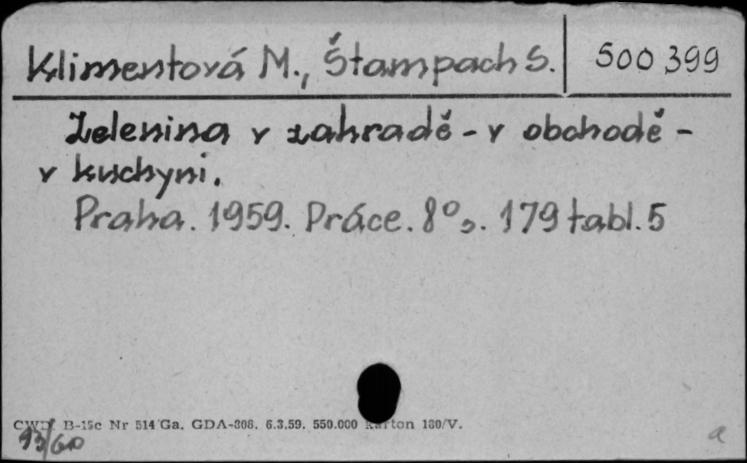 Klimentová M., Štampach S. 500 399
Zelenina v zahradě - v obchodě -
v kuchyni.
Praha. 1959. Práce. 8° s. 179 tabl. 5
CWD. B-15c Nr 514 Ga. GDA-308. 6.3.59. 550.000 karton 180/V.
93/60
a